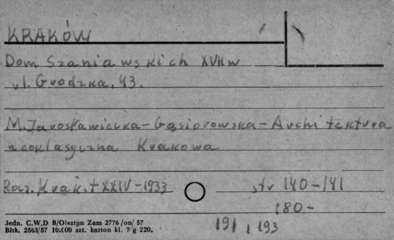 KRAKÓW
Dom Szaniawskich XVII w
ul. Grodzka, 43.
M. Jarosławiecka-Gąsiorowska - Architektura
neoklasyczna Krakowa
Rocz. Krak. t XXIV-1933 str 140-141
180-
Jedn. C.W.D 8/Olsztyn Zam 2776/on/57
Bltk. 2563/57 10.000 szt. karton kl. 7 g 220.
191 , 193